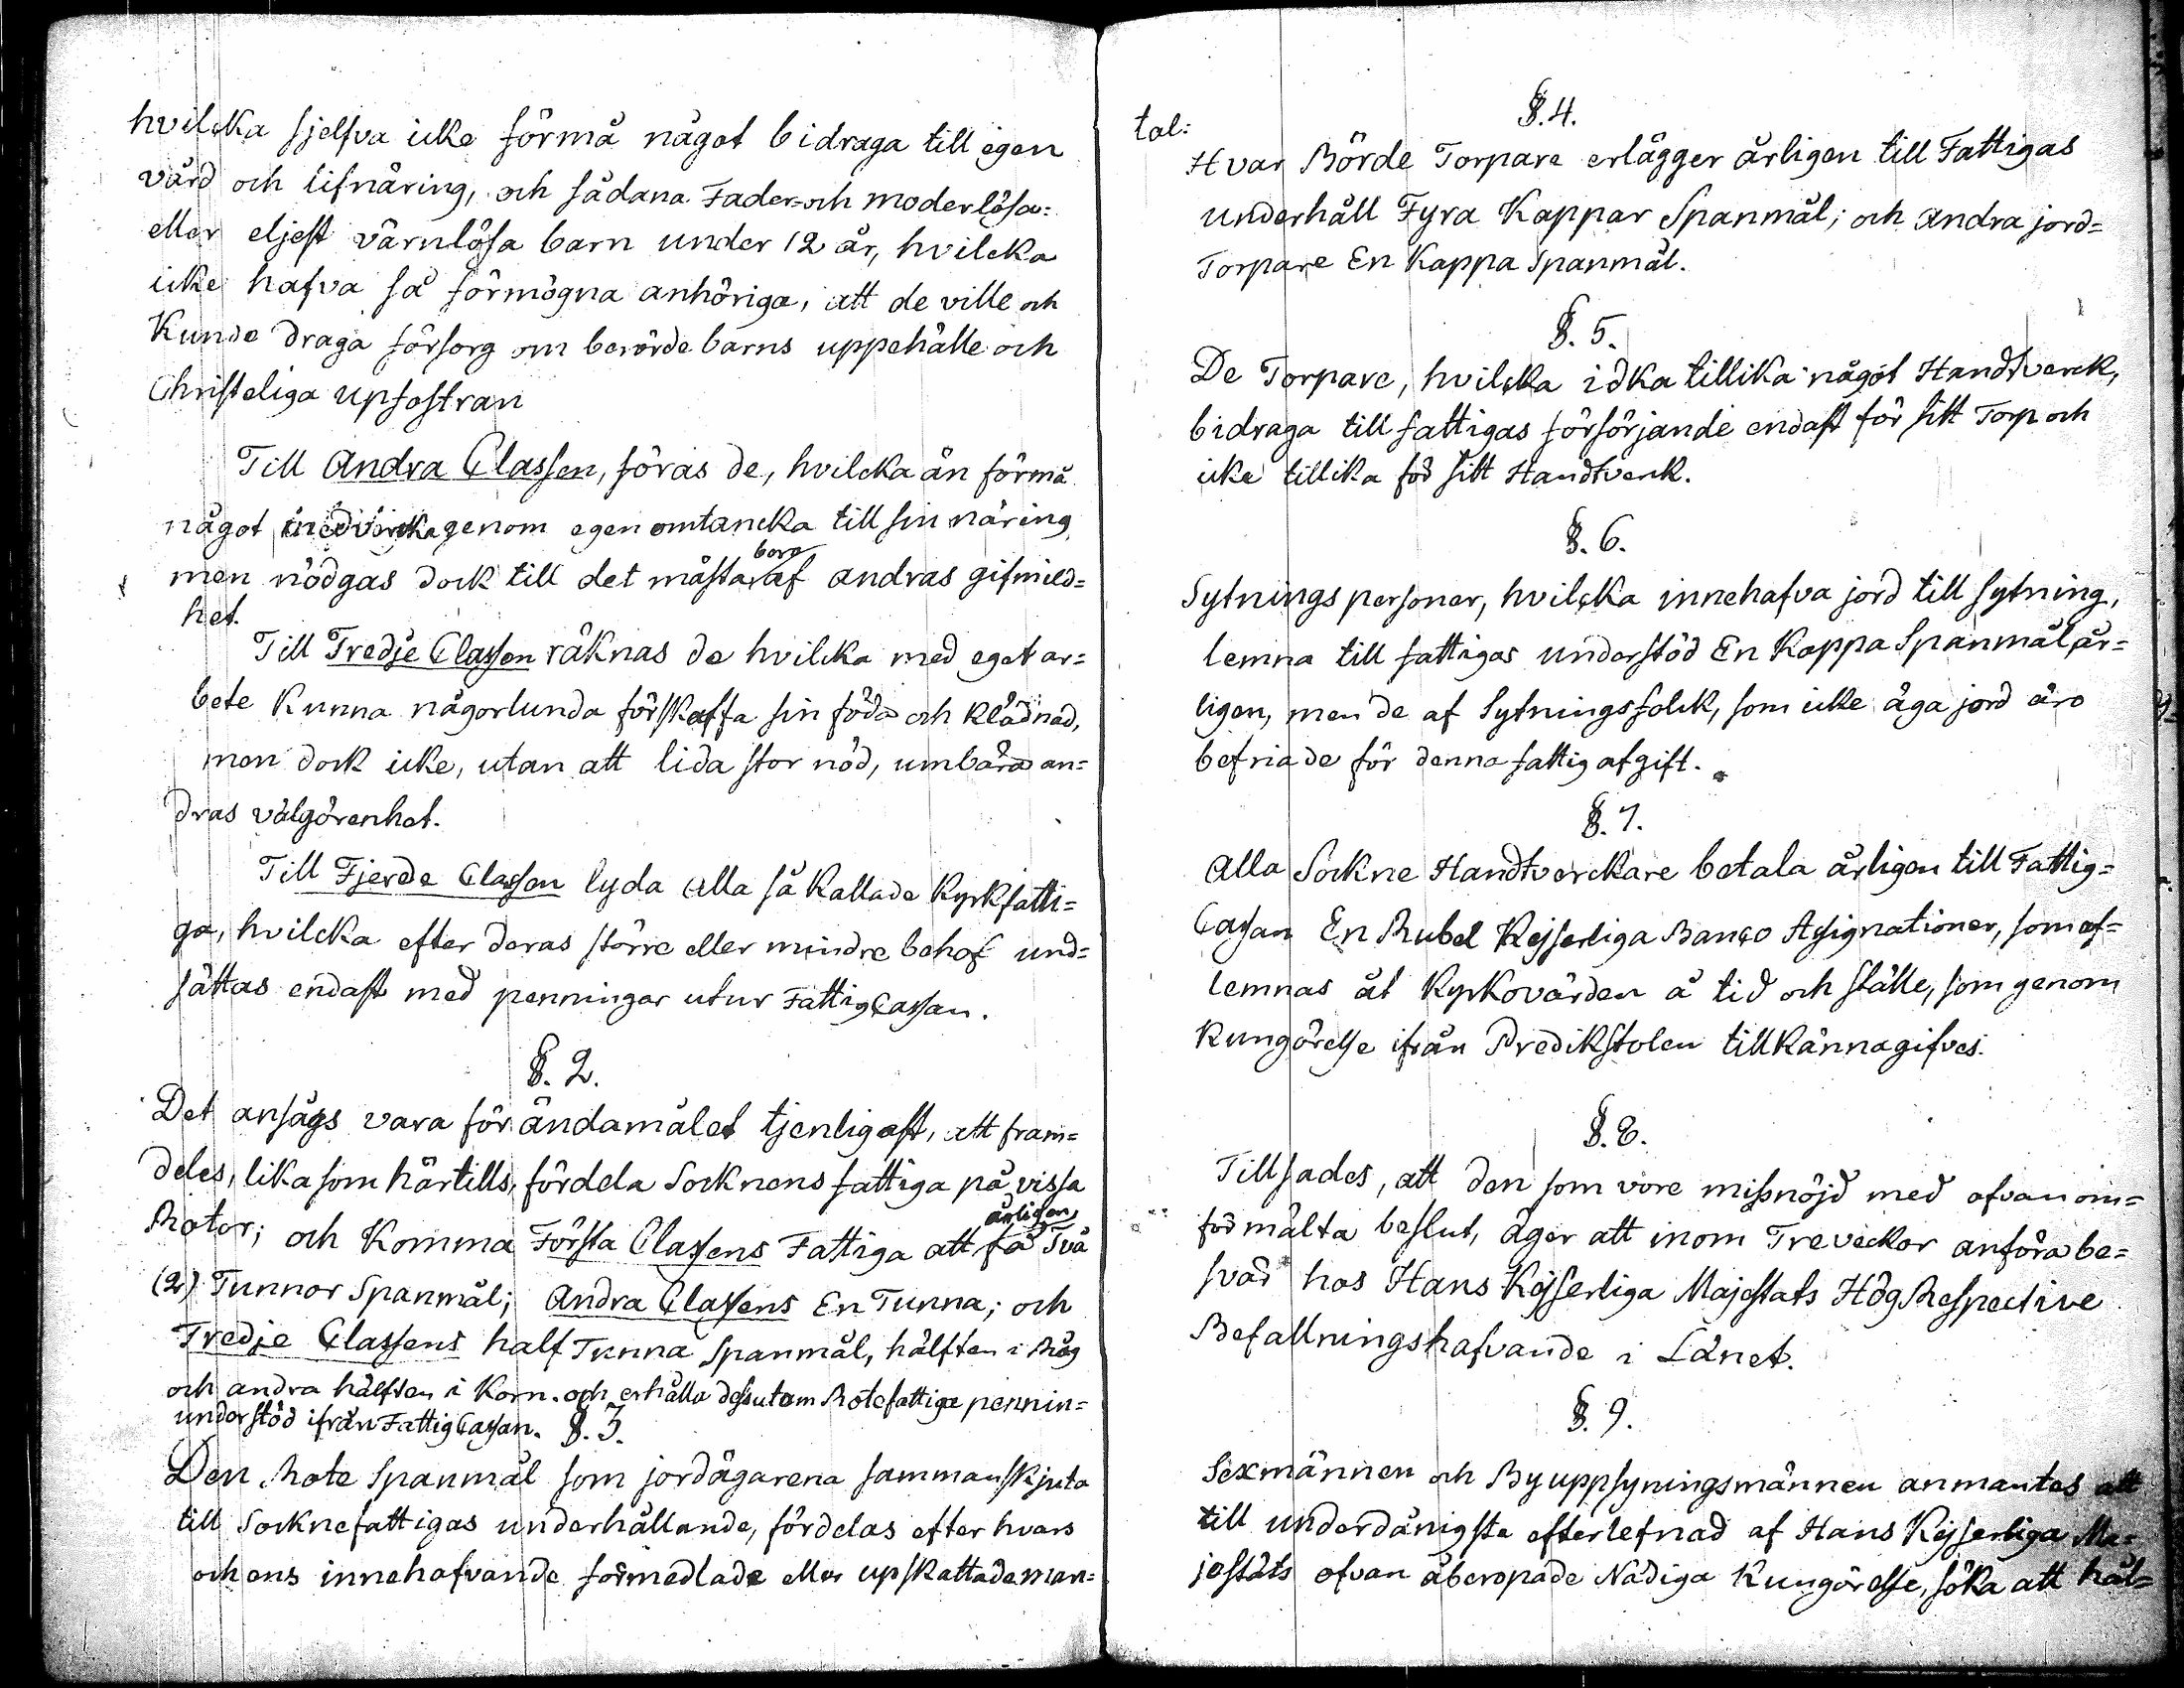 hvilcka sjelfva icke förmå något bidraga till egen
vård och lifnäring, och sådana Fader- och moderlösa=
eller eljest värnlösa barn under 12 år, hvilcka
icke hafva så förmögna anhöriga, att de ville och
Kunde draga försorg om berörde barns uppehälle och
Christeliga upfostran
Till Andra Classen, föras de, hvilcka än förmå
något medvircka genom egen omtancka till sin näring
men nödgas dock till det mästa bero af andras gifmild=
het.
Till Tredje Classen räknas de hvilcka med eget ar=
bete Kunna någorlunda förskaffa sin föda och Klädnad,
men dock icke, utan att lida stor nöd, umbära an=
dras välgörenhet.
Till Fjerde Classen lyda alla så Kallade Kyrkfatti=
ga, hvilcka efter deras större eller mindre behof und=
sättas endast med penningar utur FattigCassan.
§. 2.
Det ansågs vara för ändamålet tjenligast, att fram=
deles, lika som härtills, fördela Socknens fattiga på vissa
Rotor; och Komma Första Classens Fattiga att få årligen Två
(2) Tunnor Spanmål; Andra Classens En Tunna; och
Tredje Classens half Tunna Spanmål, hälften i Råg
och andra hälften i Korn. och erhålla dessutom Rotefattige pennin=
understöd ifrån FattigCassan. §. 3.
Den Rote Spanmål som jordägarena sammanskjuta
till Socknefattigas underhållande, fördelas efter hvars
och ens innehafvande förmedlade eller upskattade man=
tal:
§. 4.
Hvar Börde Torpare erlägger årligen till Fattigas
underhåll Fyra Kappar Spanmål; och andra jord=
Torpare En Kappa Spanmål.
§. 5.
De Torpare, hvilcka idka tillika något Handtverck,
bidraga till fattigas försörjande endast för sitt Torp och
icke tillika för sitt Handtverck.
§. 6.
Sytningspersoner, hvilcka innehafva jord till sytning,
lemna till fattigas understöd En Kappa Spanmål år=
ligen, men de af Sytningsfolck, som icke äga jord äro
befriade för denna fattigafgift.
§. 7.
Alla Sockne Handtverckare betala årligen till Fattig=
Cassan En Rubel Kejserliga Banco Assignationer, som af=
lemnas åt Kyrkovärden å tid och ställe, som genom
Kungörelse ifrån Predikstolen tillKännagifves.
§. 8.
Tillsades, att den som vore missnöjd med ofvan om=
förmälta beslut, äger att inom Tre veckor anföra be=
svär hos Hans Kejserliga Majestäts Hög Respective
Befallningshafvande i Länet.
§. 9.
Sexmännen och Byuppsyningsmännen anmantes att
till underdånigste efterlefnad af Hans Kejserliga Ma=
jestäts ofvan åberopade Nådiga Kungörelse, söka att hål=